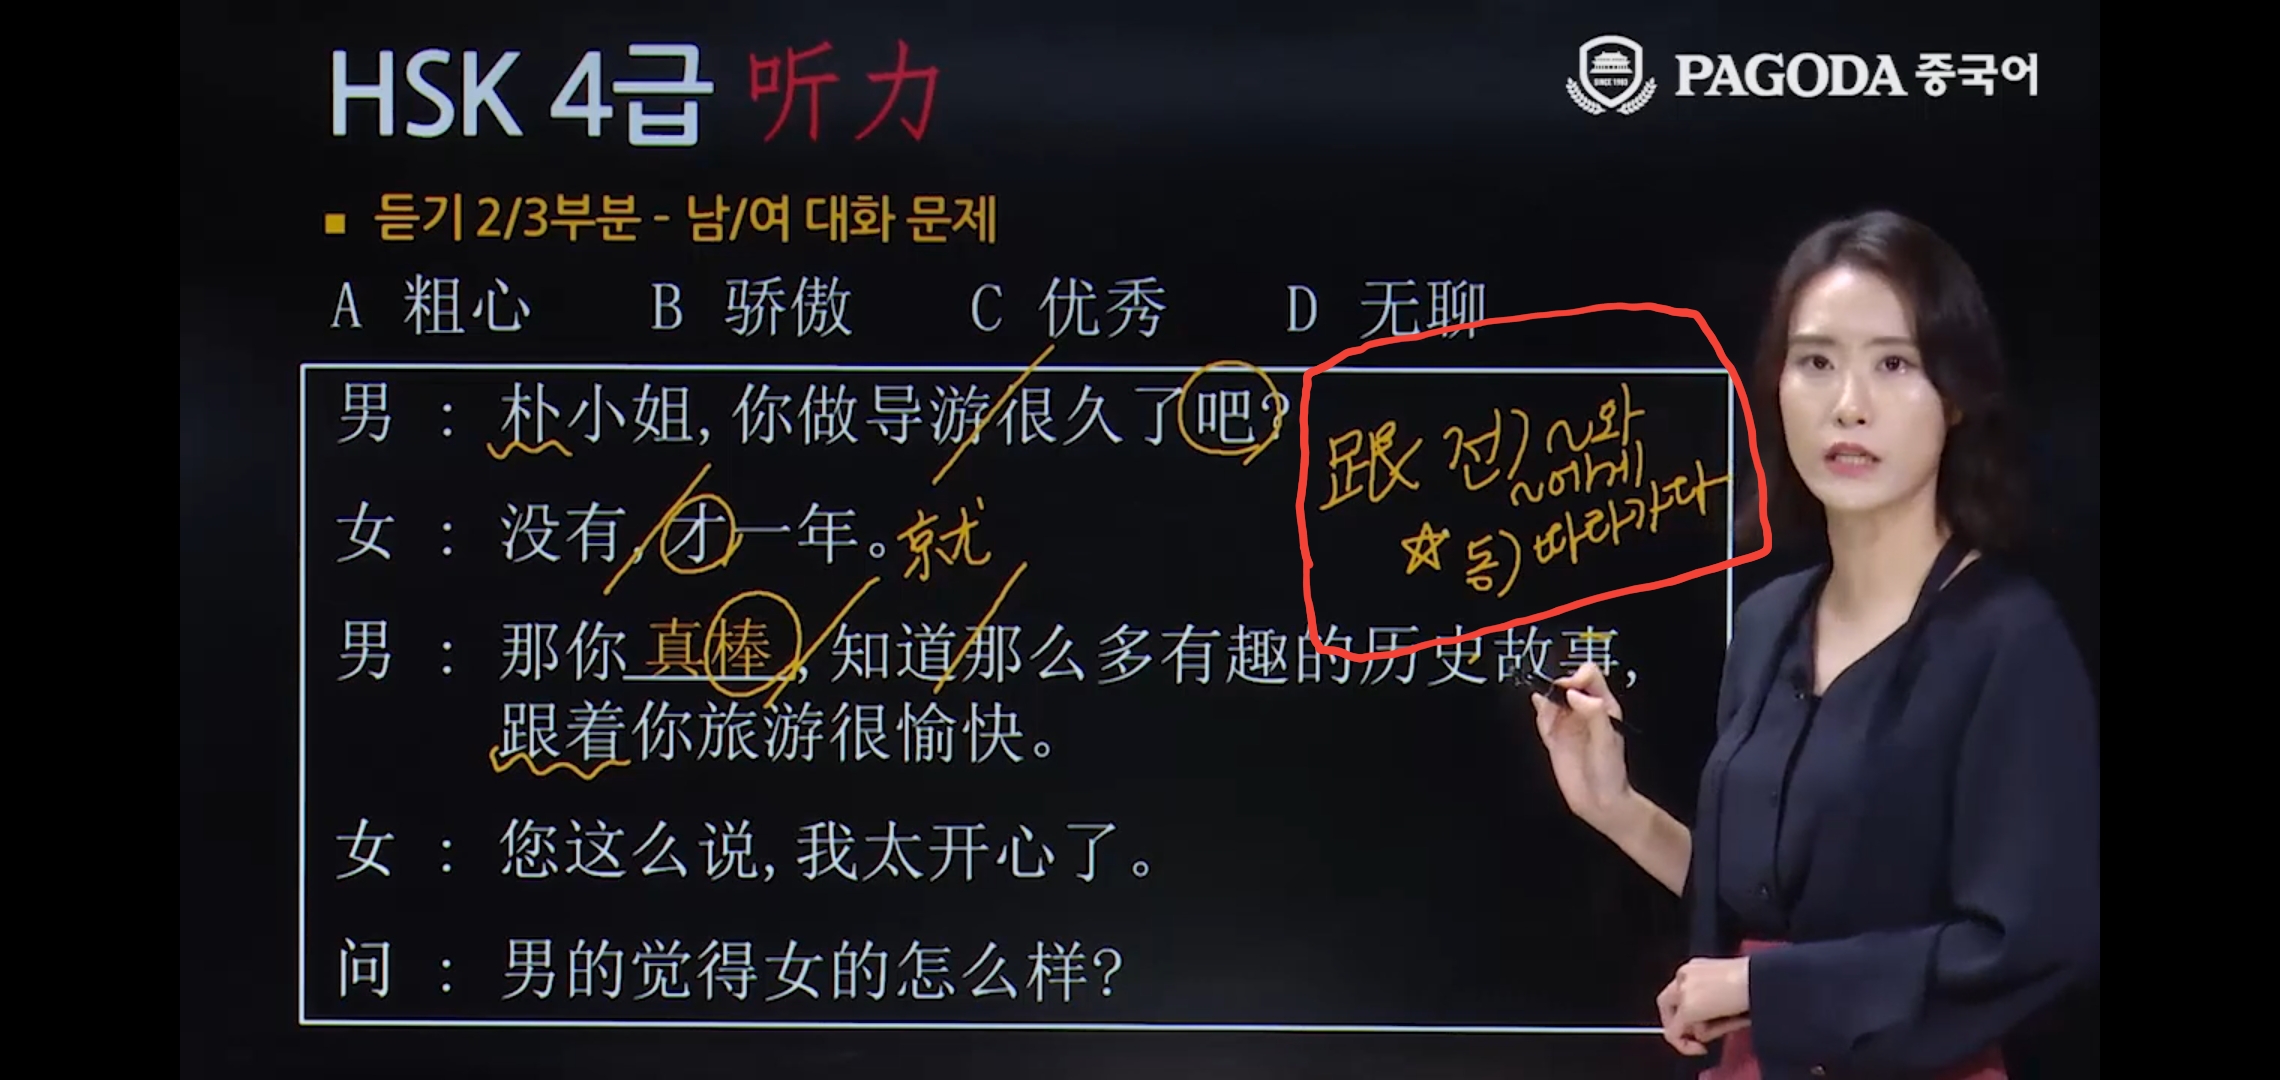 HSK 4급 听力
SINCE 1983
PAGODA 중국어
■ 듣기 2/3부분 - 남/여 대화 문제
A 粗心 B 骄傲 C 优秀 D 无聊
男 : 朴小姐, 你做导游很久了吧?
跟 전) ~와
~에게
☆ 동) 따라가다
女 : 没有, 才一年。就
男 : 那你 真棒, 知道那么多有趣的历史故事,
跟着你旅游很愉快。
女 : 您这么说, 我太开心了。
问 : 男的觉得女的怎么样?